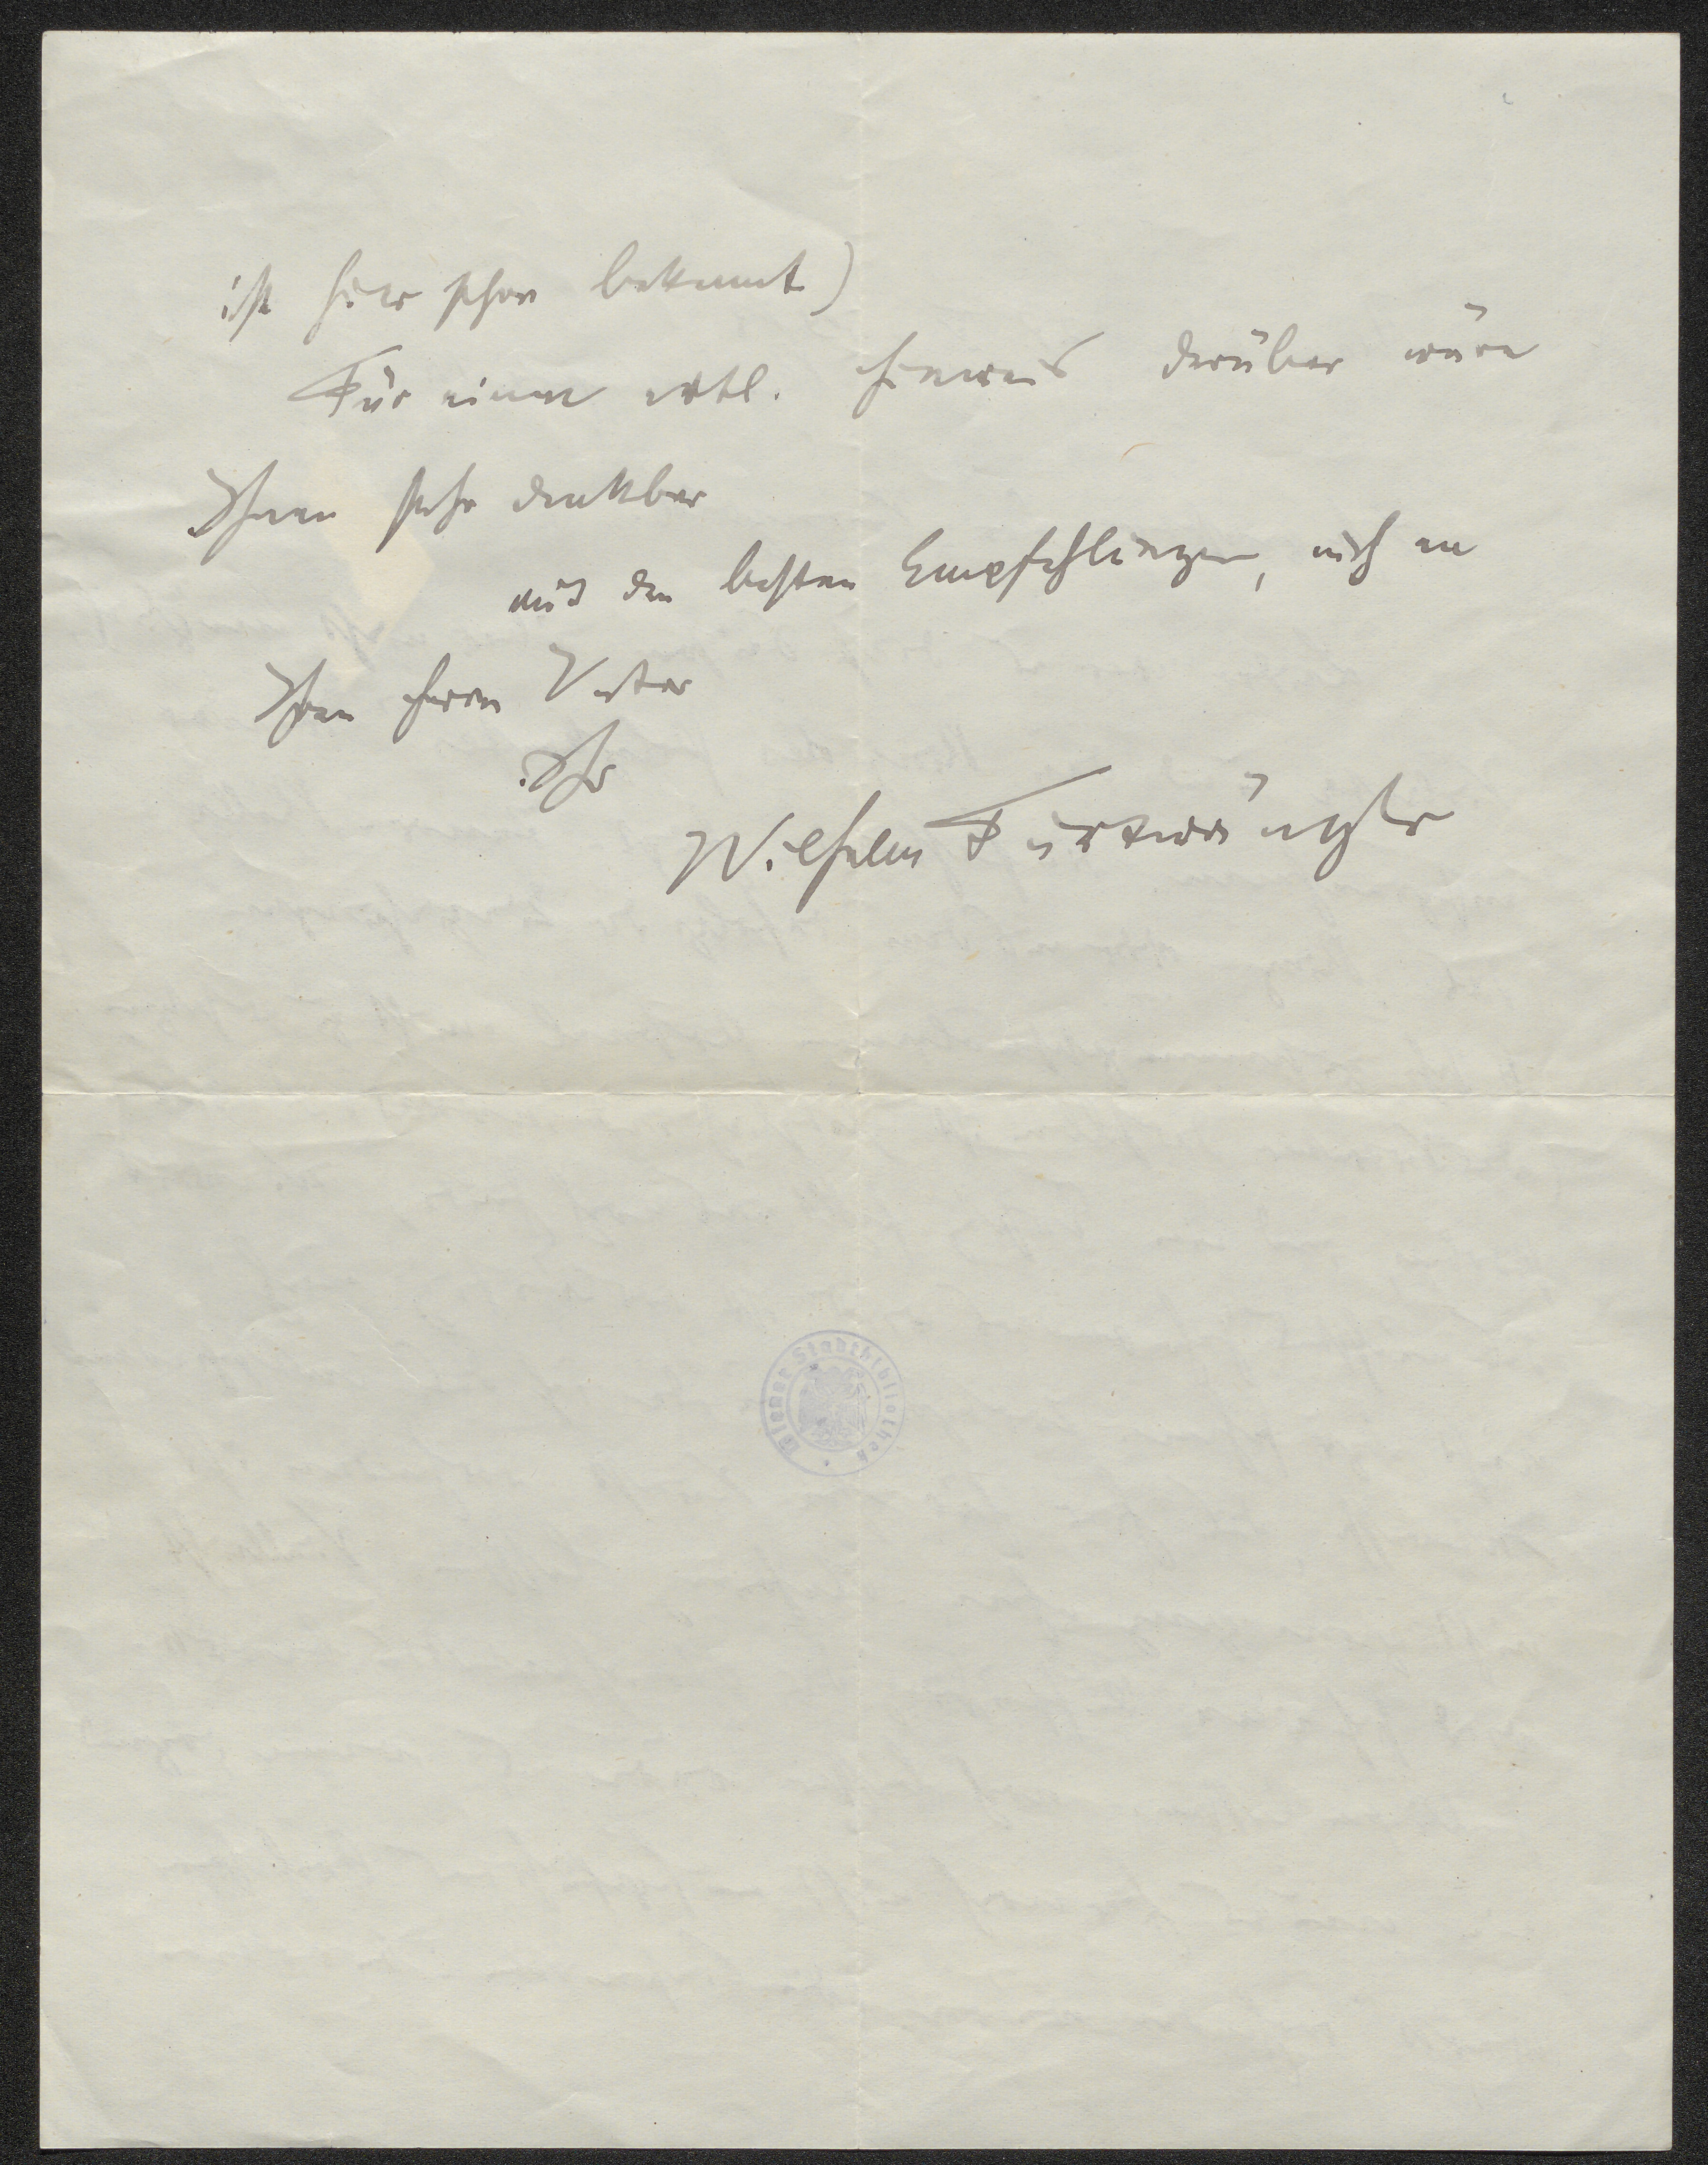 ist hier schon bekannt)
Für einen evtl. Hinweis darüber wäre
Ihnen sehr dankbar
mit den besten Empfehlungen, auch an
Ihren Herrn Vater
Ihr
Wilhelm Furtwängler
Wiener Stadtbibliothek